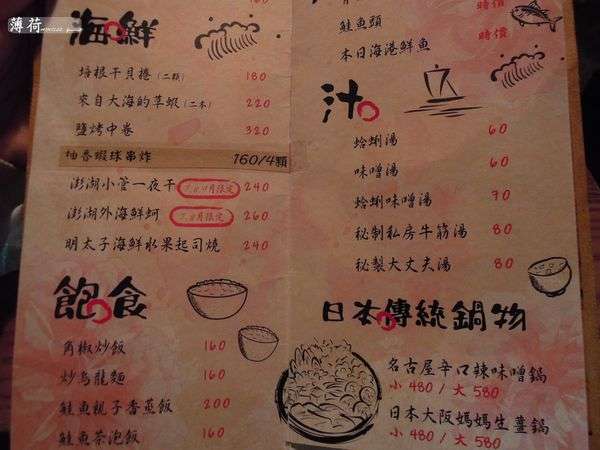 薄荷
海鮮
培根干貝捲(二顆) 180
來自大海的草蝦(二本) 220
鹽烤中卷 320
柚香蝦球串炸 160/4顆
澎湖小管一夜干 240
澎湖外海鮮蚵 260
明太子海鮮水果起司燒 240
飽食
角椒炒飯 160
炒烏龍麵 160
鮭魚親子香蔥飯 200
鮭魚茶泡飯 160
時價
鮭魚頭
本日海港鮮魚 時價
汁
蛤蜊湯 60
味噌湯 60
蛤蜊味噌湯 70
秘制私房牛筋湯 80
秘製大丈夫湯 80
日本傳統鍋物
名古屋辛口辣味噌鍋
小 480 / 大 580
日本大阪媽媽生薑鍋
小 480 / 大 580